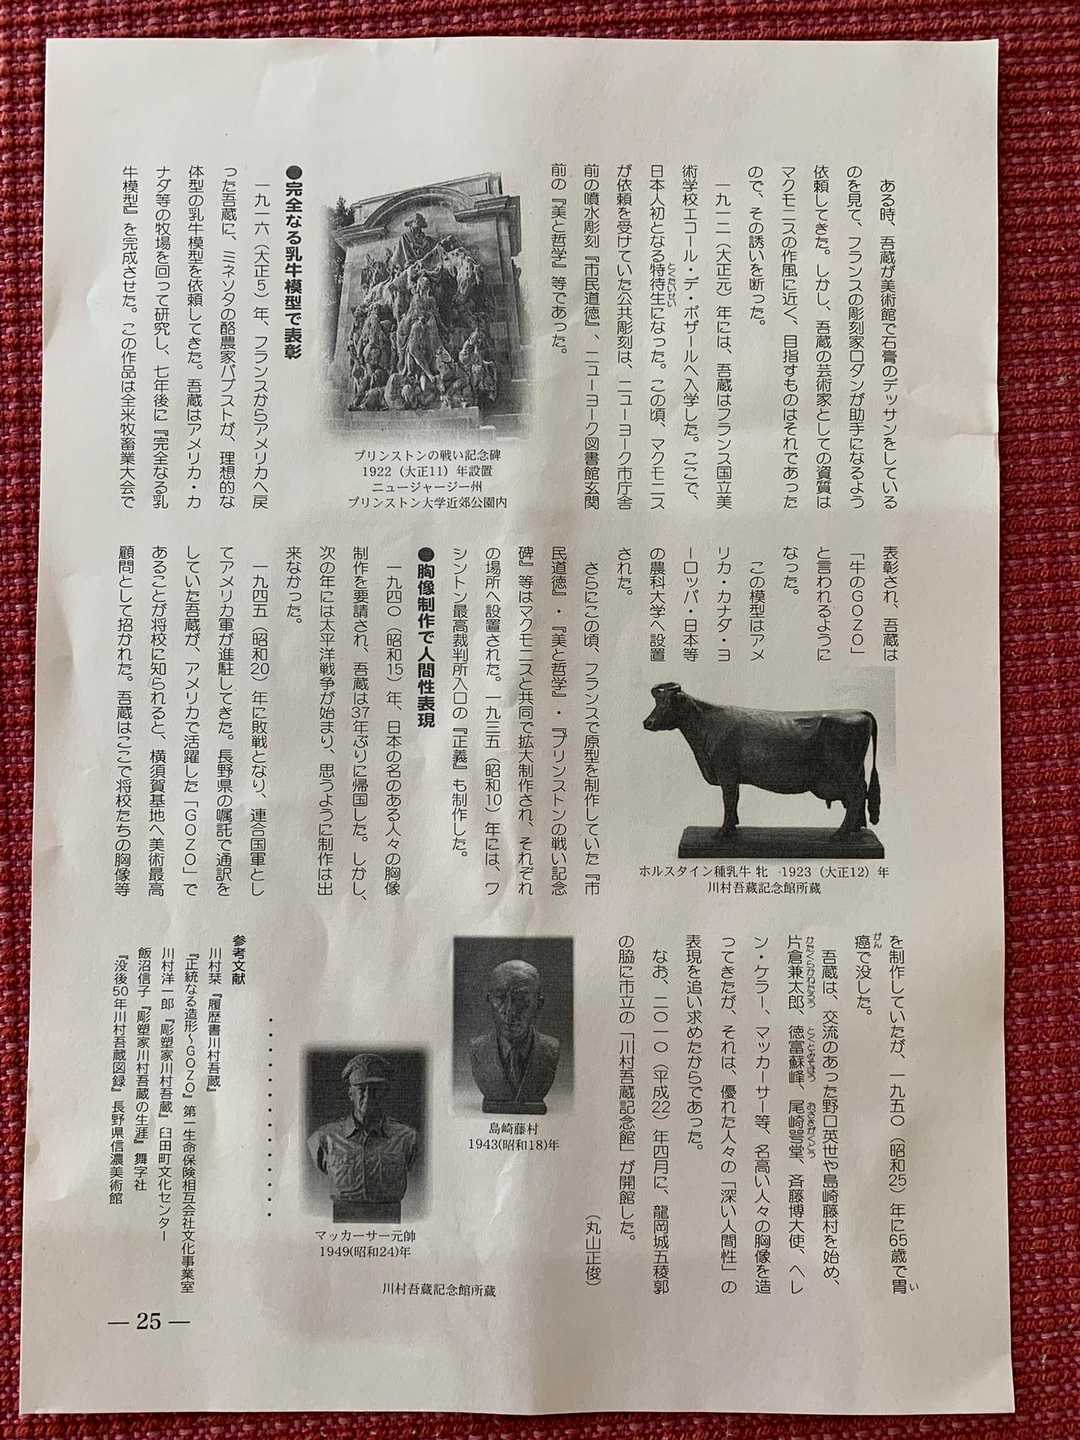 ある時、吾蔵が美術館で石膏のデッサンをしている
のを見て、フランスの彫刻家ロダンが助手になるよう
依頼してきた。しかし、吾蔵の芸術家としての資質は
マクモニスの作風に近く、目指すものはそれであった
ので、その誘いを断った。
一九一二（大正元）年には、吾蔵はフランス国立美
術学校エコール・デ・ボザールへ入学した。ここで、
日本人初となる特待生になった。この頃、マクモニス
とくたいせい
が依頼を受けていた公共彫刻は、ニューヨーク市庁舎
前の噴水彫刻『市民道徳』、ニューヨーク図書館玄関
前の『美と哲学』等であった。
プリンストンの戦い記念碑
1922（大正11）年設置
ニュージャージー州
プリンストン大学近郊公園内
●完全なる乳牛模型で表彰
一九一六（大正5）年、フランスからアメリカへ戻
った吾蔵に、ミネソタの酪農家パブストが、理想的な
体型の乳牛模型を依頼してきた。吾蔵はアメリカ・カ
ナダ等の牧場を回って研究し、七年後に『完全なる乳
牛模型』を完成させた。この作品は全米牧畜業大会で
表彰され、吾蔵は
「牛のGOZO」
と言われるように
なった。
この模型はアメ
リカ・カナダ・ヨ
ーロッパ・日本等
の農科大学へ設置
された。
ホルスタイン種乳牛 牝 1923（大正12）年
川村吾蔵記念館所蔵
さらにこの頃、フランスで原型を制作していた『市
民道徳』・『美と哲学』・『プリンストンの戦い記念
碑』等はマクモニスと共同で拡大制作され、それぞれ
の場所へ設置された。一九三五（昭和10）年には、ワ
シントン最高裁判所入口の『正義』も制作した。
●胸像制作で人間性表現
一九四〇（昭和15）年、日本の名のある人々の胸像
制作を要請され、吾蔵は37年ぶりに帰国した。しかし、
次の年には太平洋戦争が始まり、思うように制作は出
来なかった。
一九四五（昭和20）年に敗戦となり、連合国軍とし
てアメリカ軍が進駐してきた。長野県の嘱託で通訳を
していた吾蔵が、アメリカで活躍した「GOZO」で
あることが将校に知られると、横須賀基地へ美術最高
顧問として招かれた。吾蔵はここで将校たちの胸像等
を制作していたが、一九五〇（昭和25）年に65歳で胃
い
癌で没した。
がん
吾蔵は、交流のあった野口英世や島崎藤村を始め、
片倉兼太郎、徳富蘇峰、尾崎咢堂、斉藤博大使、ヘレ
かたくらかねたろう　とくとみそほう　おざきがくどう
ン・ケラー、マッカーサー等、名高い人々の胸像を造
ってきたが、それは、優れた人々の「深い人間性」の
表現を追い求めたからであった。
なお、二〇一〇（平成22）年四月に、龍岡城五稜郭
の脇に市立の「川村吾蔵記念館」が開館した。
（丸山正俊）
島崎藤村
1943(昭和18)年
マッカーサー元帥
1949(昭和24)年
川村吾蔵記念館所蔵
・・・・・・・・・・・・・・・・
参考文献
川村琹『履歴書川村吾蔵』
『正統なる造形～GOZO』第一生命保険相互会社文化事業室
川村洋一郎『彫塑家川村吾蔵』臼田町文化センター
飯沼信子『彫塑家川村吾蔵の生涯』舞字社
『没後50年川村吾蔵図録』長野県信濃美術館
— 25 —